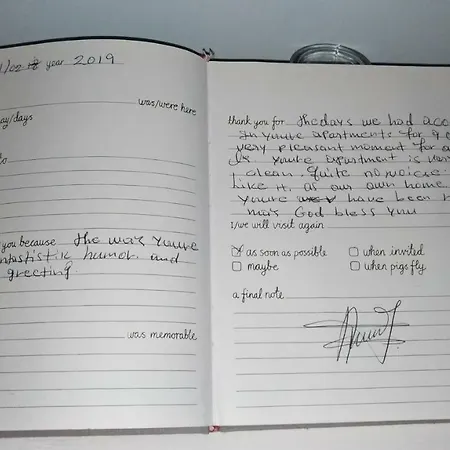 1/02 18 year 2019
was/were here
ay/days
to
you because the was youure
ntastistik humor and
greeting
was memorable
thank you for the days we had acco
In youure apartments for 9 d
very pleasant moment for a
Us. youure Apartment is ver
clean. Quite no voice.
Like it, as our own home.
youure have been h
May God bless you
I/we will visit again
as soon as possible
when invited
maybe
when pigs fly
a final note